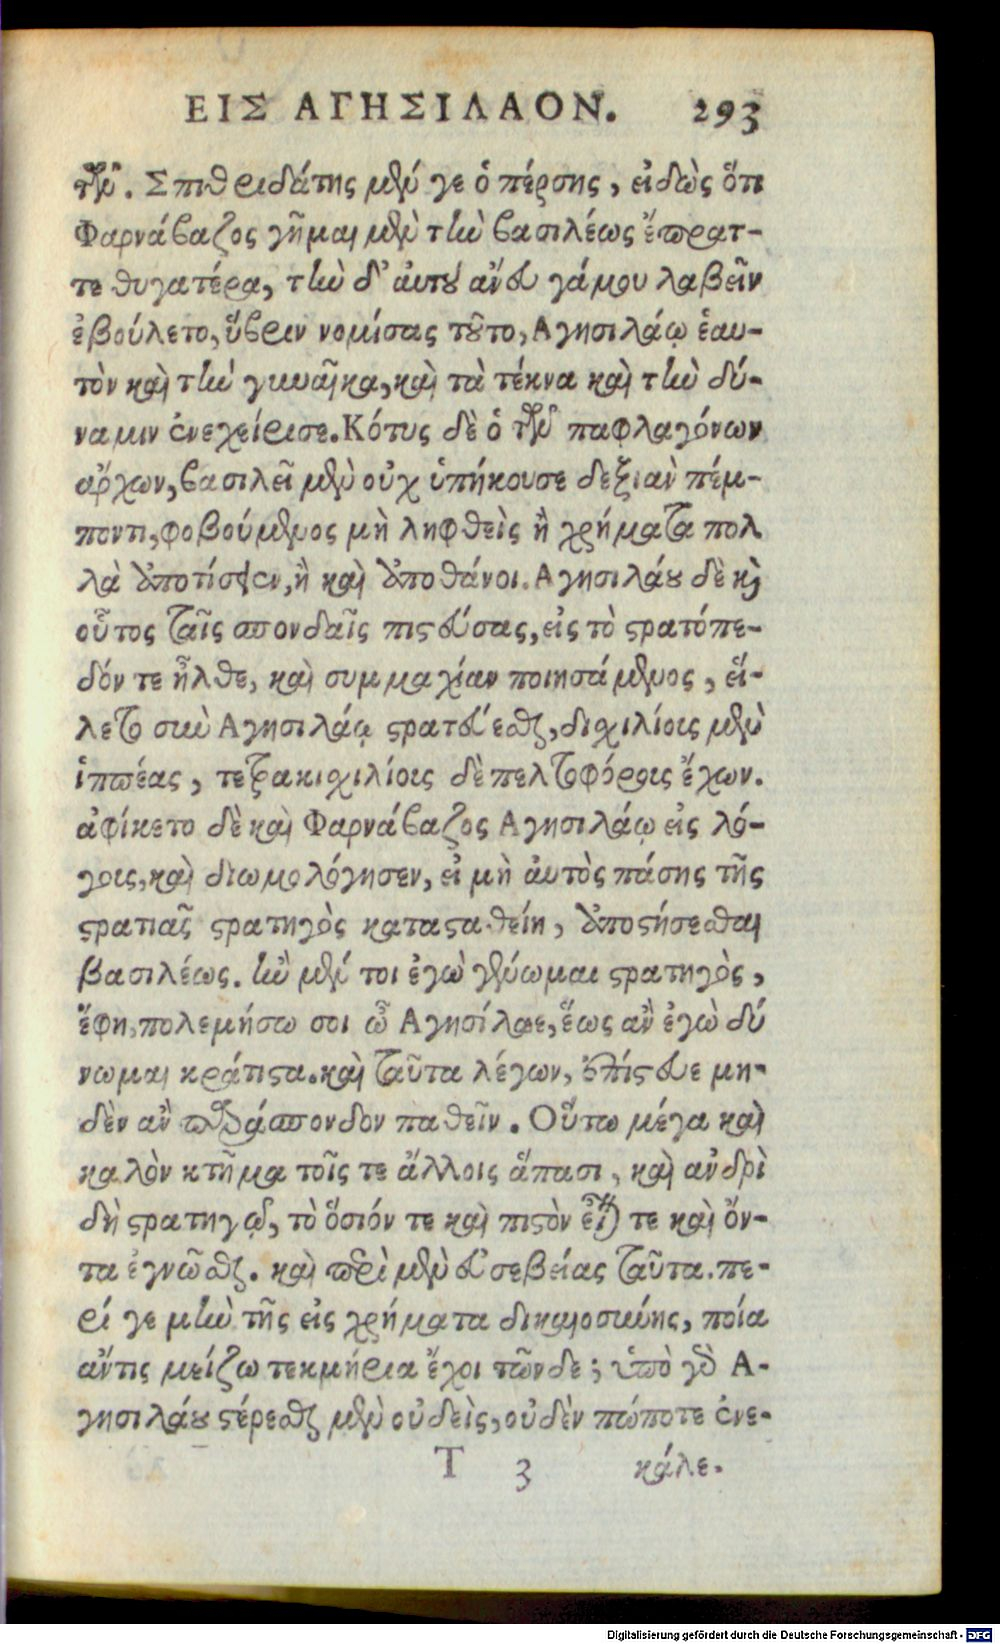 ΕΙΣ ΑΓΗΣΙΛΑΟΝ. 293
τῶν. Σπιθριδάτης μέν γε ὁ πέρσης, εἰδὼς ὅτι
Φαρνάβαζος γῆμαι μὲν τὴν βασιλέως ἔπρατ-
τε θυγατέρα, τὴν δ' ἀυτοῦ ἄνευ γάμου λαβεῖν
ἐβούλετο, ὕβριν νομίσας τοῦτο, Αγησιλάῳ ἑαυ-
τὸν καὶ τὴν γυναῖκα, καὶ τὰ τέκνα καὶ τὴν δύ-
ναμιν ἐνεχείρισε. Κότυς δὲ ὁ τῶν παφλαγόνων
ἄρχων, βασιλεῖ μὲν οὐχ ὑπήκουσε δεξιὰν πέμ-
ποντι, φοβούμενος μὴ ληφθεὶς ἢ χρήματα πολ
λὰ ἀποτίσειεν, ἢ καὶ ἀποθάνοι. Αγησιλάου δὲ καὶ
οὗτος ταῖς σπονδαῖς πιστεύσας, εἰς τὸ στρατόπε-
δόν τε ἦλθε, καὶ συμμαχίαν ποιησάμενος, εἵ-
λετο σὺν Αγησιλάῳ στρατεύεσθαι, διχιλίους μὲν
ἱππέας, τετρακιχιλίους δὲ πελτοφόρους ἔχων.
ἀφίκετο δὲ καὶ Φαρνάβαζος Αγησιλάῳ εἰς λό-
γους, καὶ διωμολόγησεν, εἰ μὴ ἀυτὸς πάσης τῆς
στρατιᾶς στρατηγὸς κατασταθείη, ἀποστήσεσθαι
βασιλέως. ἢν μέν τοι ἐγὼ γένωμαι στρατηγὸς,
ἔφη, πολεμήσω σοι ὦ Αγησίλαε, ἕως ἂν ἐγὼ δύ
νωμαι κράτιστα. καὶ ταῦτα λέγων, ἐπίστευε μη-
δὲν ἂν παράσπονδον παθεῖν. Οὕτω μέγα καὶ
καλὸν κτῆμα τοῖς τε ἄλλοις ἅπασι, καὶ ἀνδρὶ
δὴ στρατηγῷ, τὸ ὅσιόν τε καὶ πιστὸν εἶναί τε καὶ ὄν-
τα ἐγνῶσθαι. καὶ περὶ μὲν εὐσεβείας ταῦτα. πε-
ρί γε μὴν τῆς εἰς χρήματα δικαιοσύνης, ποία
ἄντις μείζω τεκμήρια ἔχοι τῶνδε; ὑπὸ γὰρ Α-
γησιλάου στέρεσθαι μὲν οὐδεὶς, οὐδὲν πώποτε ἐνε-
Τ 3 κάλε-
Digitalisierung gefördert durch die Deutsche Forschungsgemeinschaft - DFG